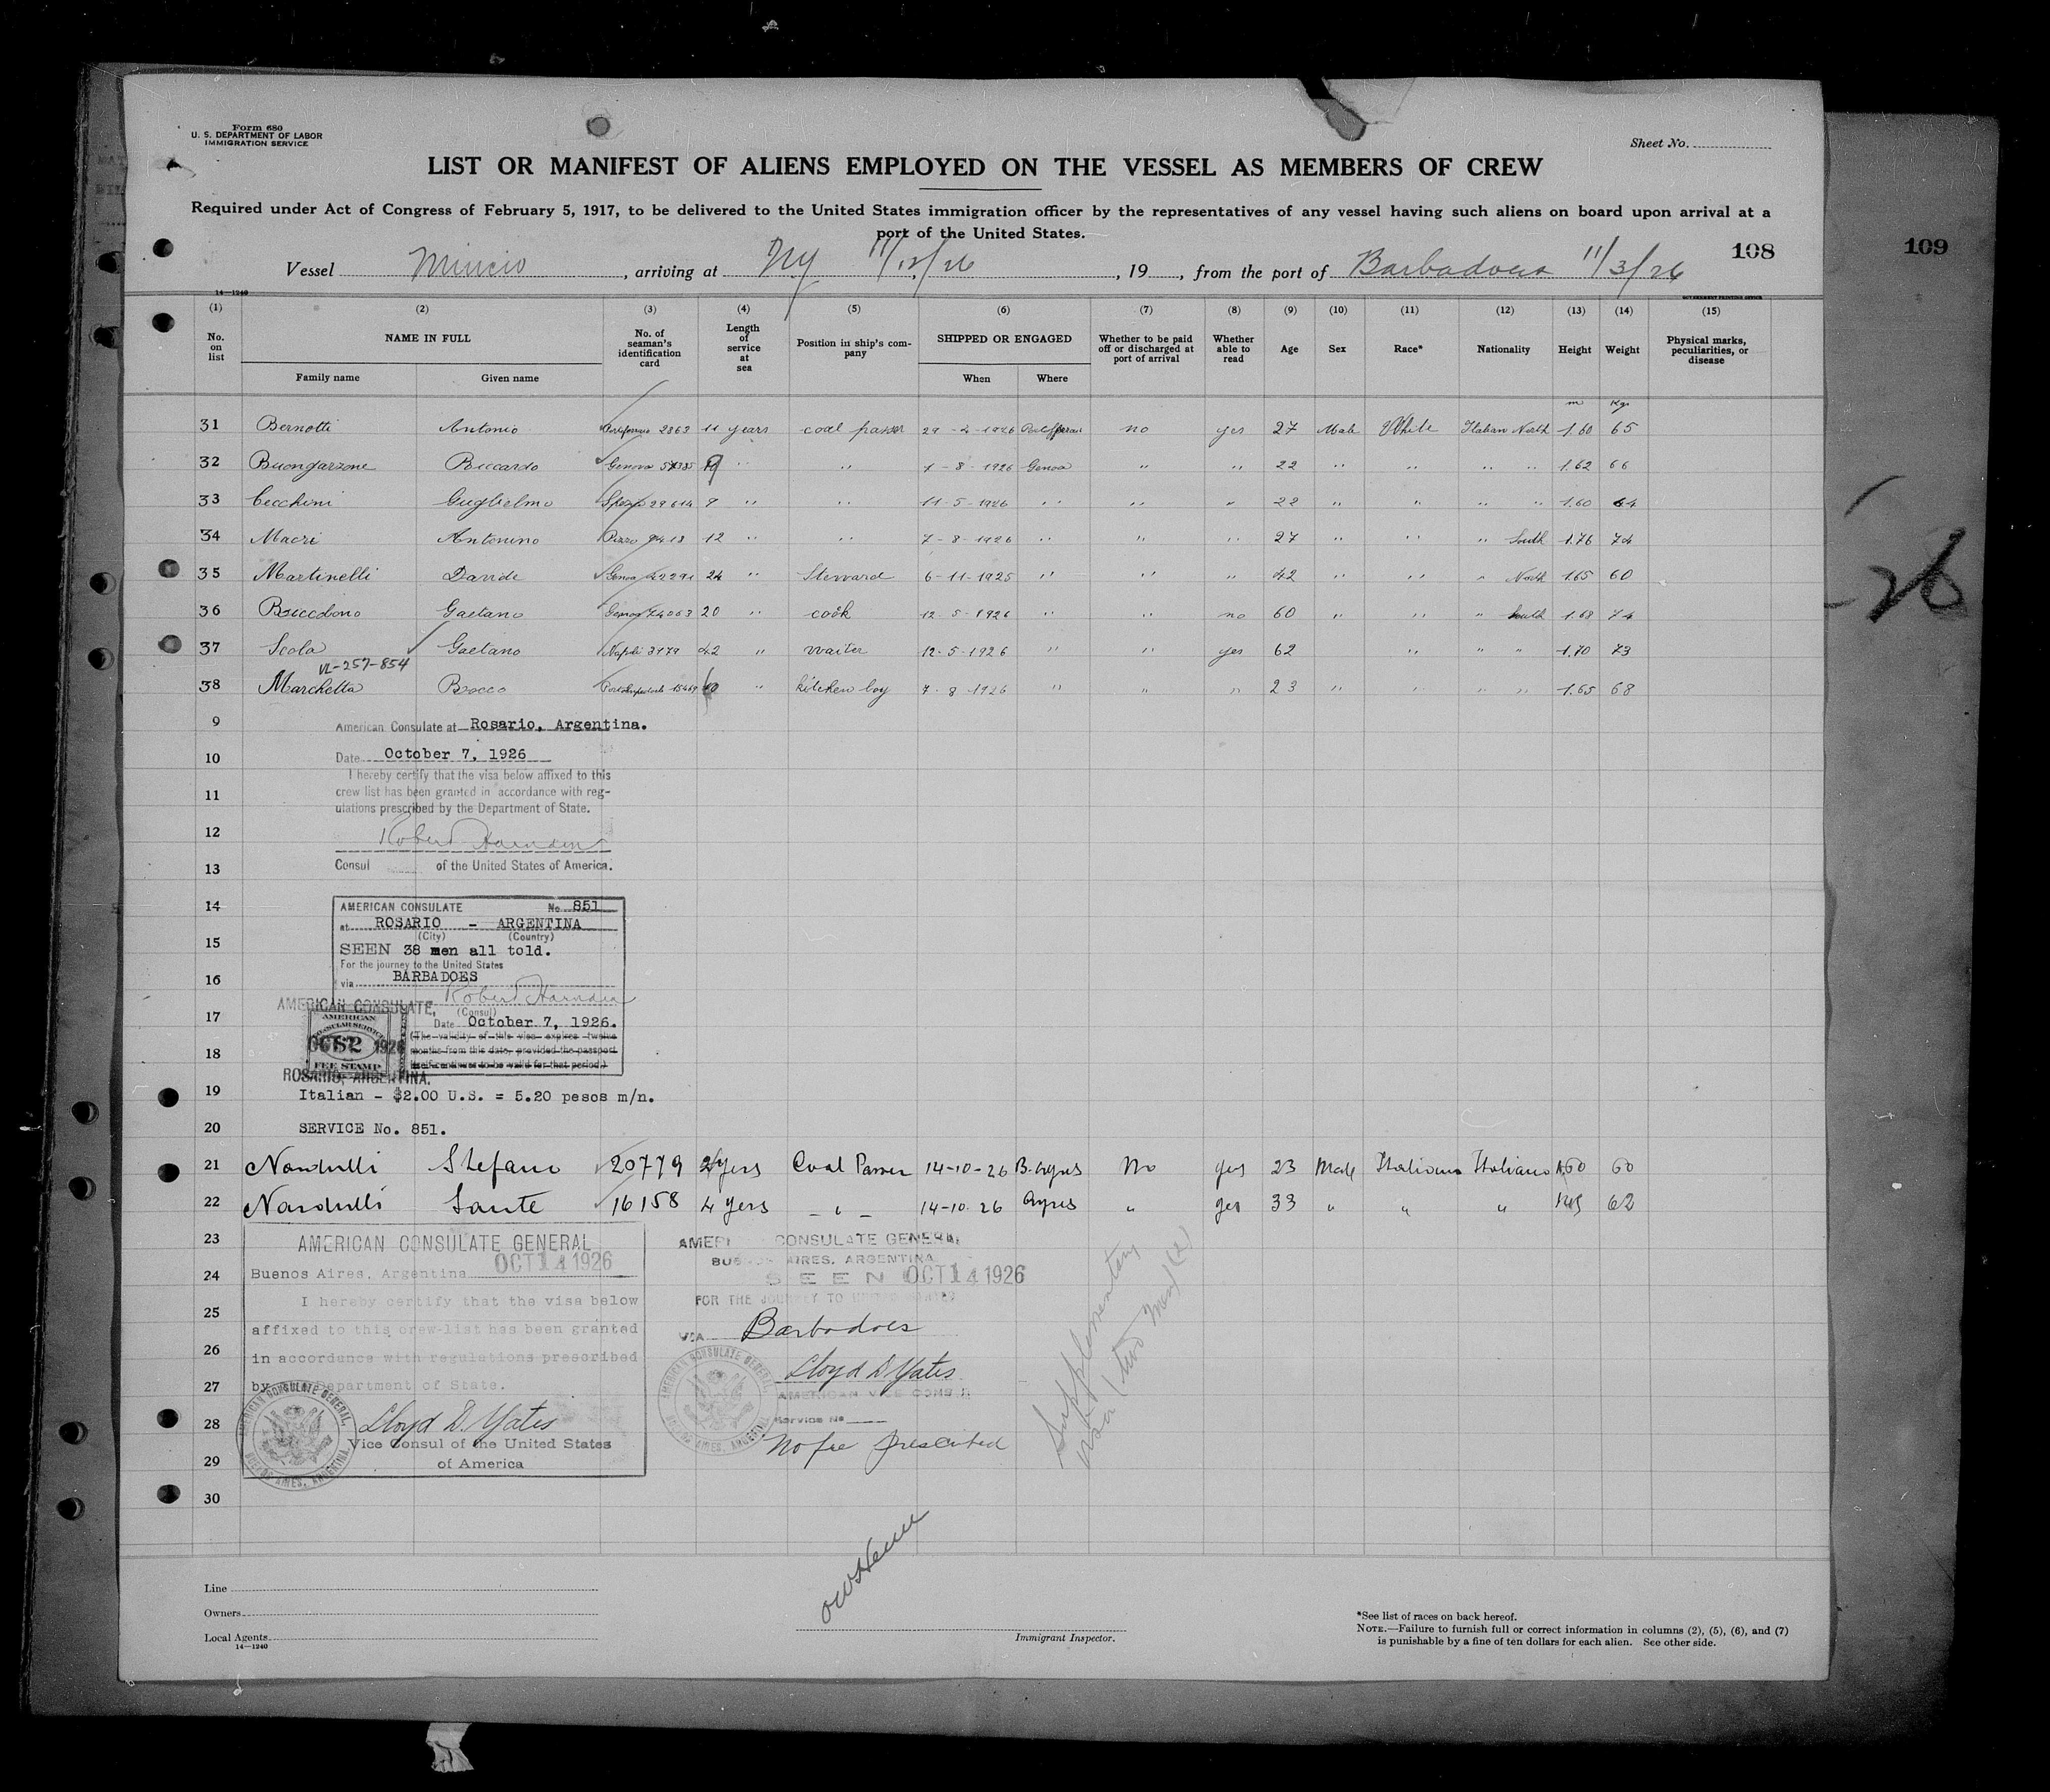 Form 680
U. S. DEPARTMENT OF LABOR
IMMIGRATION SERVICE
Sheet No.
LIST OR MANIFEST OF ALIENS EMPLOYED ON THE VESSEL AS MEMBERS OF CREW
Required under Act of Congress of February 5, 1917, to be delivered to the United States immigration officer by the representatives of any vessel having such aliens on board upon arrival at a
port of the United States.
108
109
Vessel Mincio, arriving at NY 11/12/26, 19, from the port of Barbadoes 11/3/26
14—1240
(1) (2) (3) (4) (5) (6) (7) (8) (9) (10) (11) (12) (13) (14) (15)
No. on list NAME IN FULL No. of seaman's identification card Length of service at sea Position in ship's company SHIPPED OR ENGAGED Whether to be paid off or discharged at port of arrival Whether able to read Age Sex Race* Nationality Height Weight Physical marks, peculiarities, or disease
Family name Given name When Where
m Kgr
31 Bernotti Antonio 2863 11 years coal passer 29-4-1926 no yes 27 Male White Italian North 1.60 65
32 Buongarzone Riccardo Genova " " 1-8-1926 Genoa " " 22 " " " " 1.62 66
33 Cecchini Guglielmo Spezia 29614 9 " " 11-5-1926 " " " 22 " " " " 1.60 64
34 Macri Antonino Pizzo 12 " " 7-8-1926 " " " 27 " " " South 1.76 74
35 Martinelli Davide Genoa 42291 24 " Steward 6-11-1925 " " " 42 " " " North 1.65 60
36 Buccobono Gaetano Genoa 74063 20 " cook 12-5-1926 " " no 60 " " " South 1.68 74
37 Scola Gaetano Napoli 3179 42 " waiter 12-5-1926 " " yes 62 " " " 1.70 73
VL-257-854
38 Marchetta Rocco 15469 10 " kitchen boy 7-8-1926 " " " 23 " " " " 1.65 68
9
American Consulate at Rosario, Argentina.
10
Date October 7, 1926
I hereby certify that the visa below affixed to this
11
crew list has been granted in accordance with reg-
ulations prescribed by the Department of State.
12
Robert Harnden
13
Consul of the United States of America.
14
AMERICAN CONSULATE No 851
at ROSARIO - ARGENTINA
(City) (Country)
15
SEEN 38 men all told.
For the journey to the United States
16
via BARBADOES
Robert Harnden
AMERICAN CONSULATE,
(Consul)
17
Date October 7, 1926.
AMERICAN
CONSULAR SERVICE
OCT 1926
$2
(The validity of this visa expires twelve
18
months from this date, provided the passport
itself continues to be valid for that period.)
FEE STAMP
ROSARIO, ARGENTINA.
19
Italian - $2.00 U.S. = 5.20 pesos m/n.
20
SERVICE No. 851.
21 Nardulli Stefano 20779 yers Coal Passer 14-10-26 B. Ayres No yes 23 Male Italiano Italiano 1.60 60
22 Nardulli Sante 16158 4 yers - " - 14-10-26 Ayres " yes 33 " " " 62
23
AMERICAN CONSULATE GENERAL
OCT 14 1926
24
Buenos Aires, Argentina
25
I hereby certify that the visa below
affixed to this crew-list has been granted
26
in accordance with regulations prescribed
27
by Department of State.
AMERICAN CONSULATE GENERAL, BUENOS AIRES, ARGENTINA
28
Lloyd D. Yates
Vice Consul of the United States
29
of America
30
CONSULATE GENERAL
BUENOS AIRES, ARGENTINA
SEEN OCT 14 1926
FOR THE JOURNEY TO UNITED STATES
VIA Barbadoes
Lloyd D Yates
AMERICAN VICE CONSUL
AMERICAN CONSULATE GENERAL, BUENOS AIRES, ARGENTINA
Service No
No fee prescribed
Supplementary
visa (two men) (2)
Line
Owners
Local Agents
14—1240
Immigrant Inspector.
*See list of races on back hereof.
NOTE.—Failure to furnish full or correct information in columns (2), (5), (6), and (7)
is punishable by a fine of ten dollars for each alien. See other side.